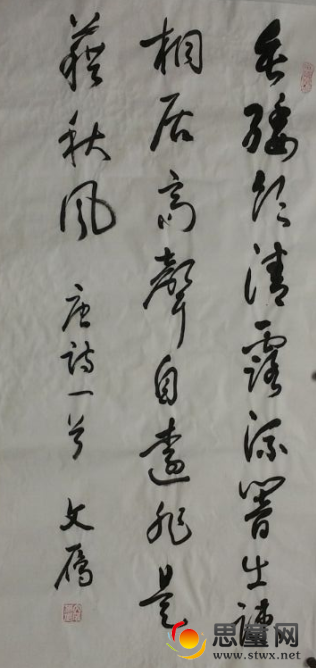 垂緌飲清露流響出疎
桐居高聲自遠非是
藉秋風 唐詩一首 文
思童网
www.stwx.net